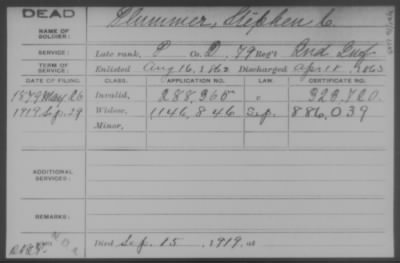 DEAD
NAME OF SOLDIER: Plummer, Stephen C
SERVICE: Late rank, P Co. D, 79 Reg't Ind Inf
TERM OF SERVICE: Enlisted Aug 16, 1862 Discharged Apr 18, 1863
DATE OF FILING. CLASS. APPLICATION NO. LAW. CERTIFICATE NO.
1879 May 26 Invalid, 288,365 " 323,720.
1919 Sep. 29 Widow, 1146,846 Sep. 886,039
Minor,
ADDITIONAL SERVICES:
REMARKS:
Died Sep. 15, 1919, at